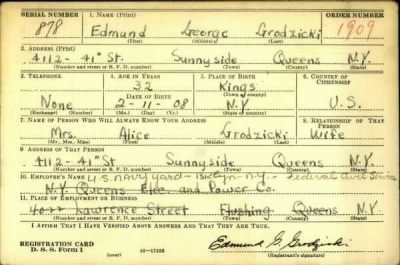 SERIAL NUMBER 1. NAME (Print) ORDER NUMBER
878 Edmund George Grodzicki 1909
(First) (Middle) (Last)
2. ADDRESS (Print)
4112 - 41" St. Sunnyside Queens N.Y.
(Number and street or R. F. D. number) (Town) (County) (State)
3. TELEPHONE 4. AGE IN YEARS 5. PLACE OF BIRTH 6. COUNTRY OF CITIZENSHIP
32 Kings
DATE OF BIRTH (Town or county)
None 2-11-08 N.Y. U.S.
(Exchange) (Number) (Mo.) (Day) (Yr.) (State or country)
7. NAME OF PERSON WHO WILL ALWAYS KNOW YOUR ADDRESS 8. RELATIONSHIP OF THAT PERSON
Mrs. Alice Grodzicki Wife
(Mr., Mrs., Miss) (First) (Middle) (Last)
9. ADDRESS OF THAT PERSON
4112 - 41" St Sunnyside Queens N.Y.
(Number and street or R. F. D. number) (Town) (County) (State)
10. EMPLOYER'S NAME U.S. Navy Yard - N.Y. - Federal Civil Service
N.Y. Queens Elec. and Power Co.
11. PLACE OF EMPLOYMENT OR BUSINESS
Lawrence Street Flushing Queens N.Y.
(Number and street or R. F. D. number) (Town) (County) (State)
I AFFIRM THAT I HAVE VERIFIED ABOVE ANSWERS AND THAT THEY ARE TRUE.
REGISTRATION CARD
D. S. S. FORM 1 (over) 16—17105 Edmund G. Grodzicki
(Registrant's signature)